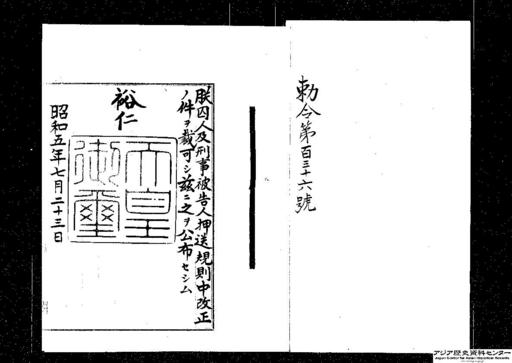 勅令第百三十六號
朕囚人及刑事被告人押送規則中改正
ノ件ヲ裁可シ茲ニ之ヲ公布セシム
裕仁
天皇
御璽
昭和五年七月二十三日
アジア歴史資料センター
Japan Center for Asian Historical Records